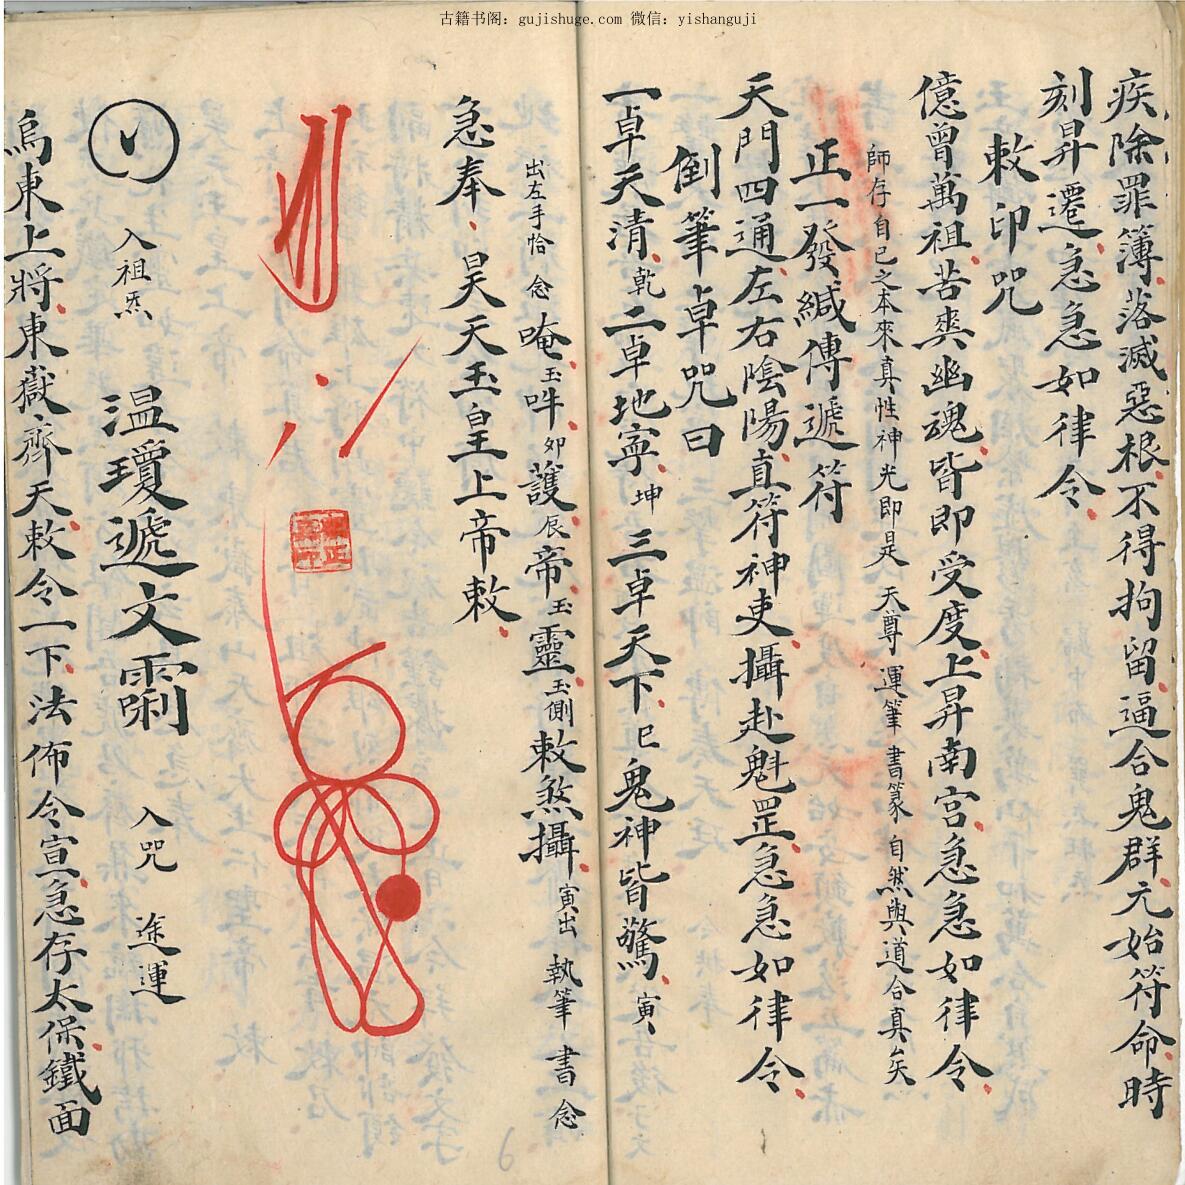 古籍书阁：gujishuge.com 微信：yishanguji
疾除罪簿落滅惡根不得拘留逼合鬼群元始符命時
刻昇遷急急如律令
敕印咒
億曾萬祖苦爽幽魂皆即受度上昇南宮急急如律令
師存自己之本來真性神光即是 天尊 運筆 書篆 自然與道合真矣
正一發緘傳遞符
天門四通左右陰陽直符神吏攝赴魁罡急急如律令
倒筆卓咒曰
一卓天清乾二卓地寧坤三卓天下巳鬼神皆驚寅
出左手恰 念 唵玉吽夘護辰帝玉靈玉側敕煞攝寅出 執筆 書 念
急奉昊天玉皇上帝敕
入祖炁 温瓊遞文 入咒 途運
烏東上將東嶽齊天敕令一下法佈令宣急存太保鐵面
6